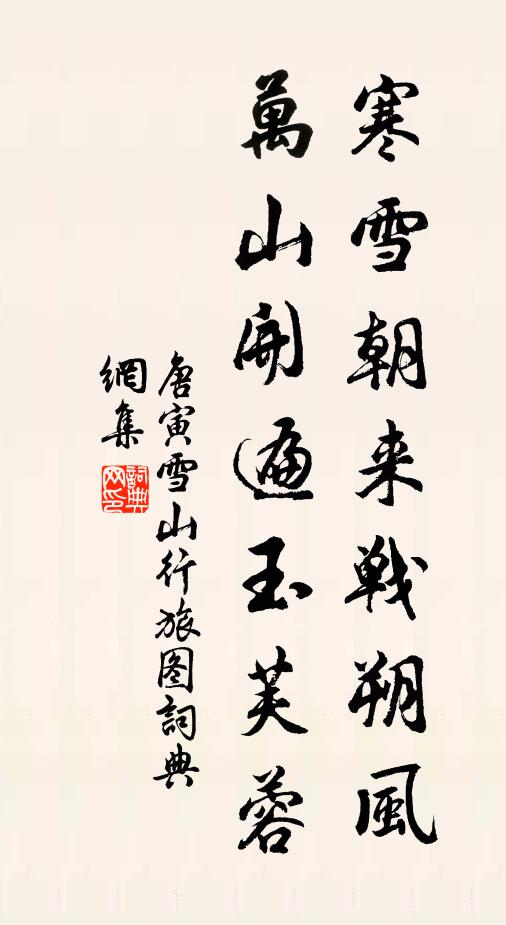 寒雪朝来戦朔風
萬山開遍玉芙蓉
唐寅雪山行旅图詞典
網集
詞典網印